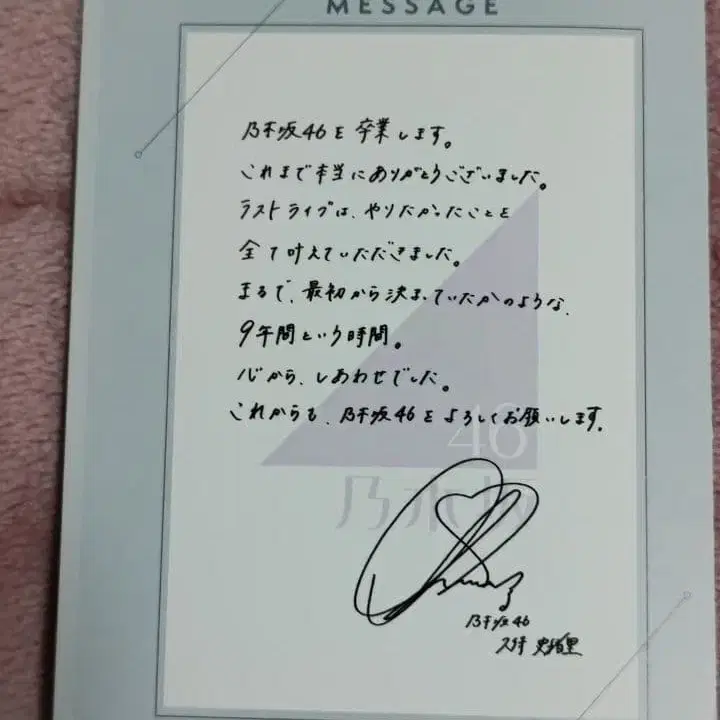 MESSAGE
乃木坂46を卒業します。
これまで本当にありがとうございました。
ラストライブは、やりたかったことを
全て叶えていただきました。
まるで、最初から決まっていたかのような、
9年間という時間。
心から、しあわせでした。
これからも、乃木坂46をよろしくお願いします。
46
乃木坂
乃木坂46
久保 史緒里